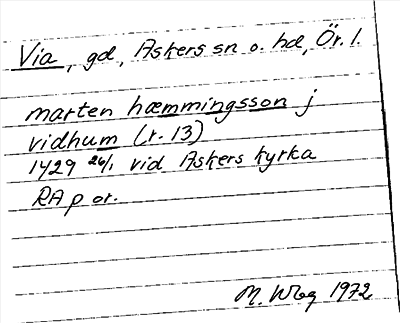 Via, gd, Askers sn o. hd, Ör. l.
marten hæmmingsson j
vidhum (r. 13)
1429 26/1 vid Askers kyrka
RAp or.
M. Wbg 1972